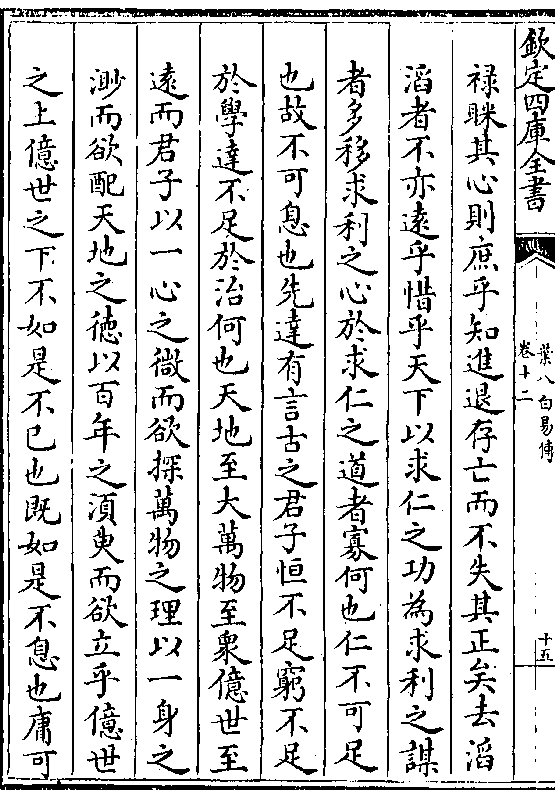 欽定四庫全書
葉八白易傳
卷十二
十五
禄眯其心則庶乎知進退存亡而不失其正矣去滔
滔者不亦遠乎惜乎天下以求仁之功為求利之謀
者多移求利之心於求仁之道者寡何也仁不可足
也故不可息也先達有言古之君子恒不足窮不足
於學達不足於治何也天地至大萬物至衆億世至
遠而君子以一心之微而欲探萬物之理以一身之
渺而欲配天地之德以百年之須臾而欲立乎億世
之上億世之下不如是不已也既如是不息也庸可